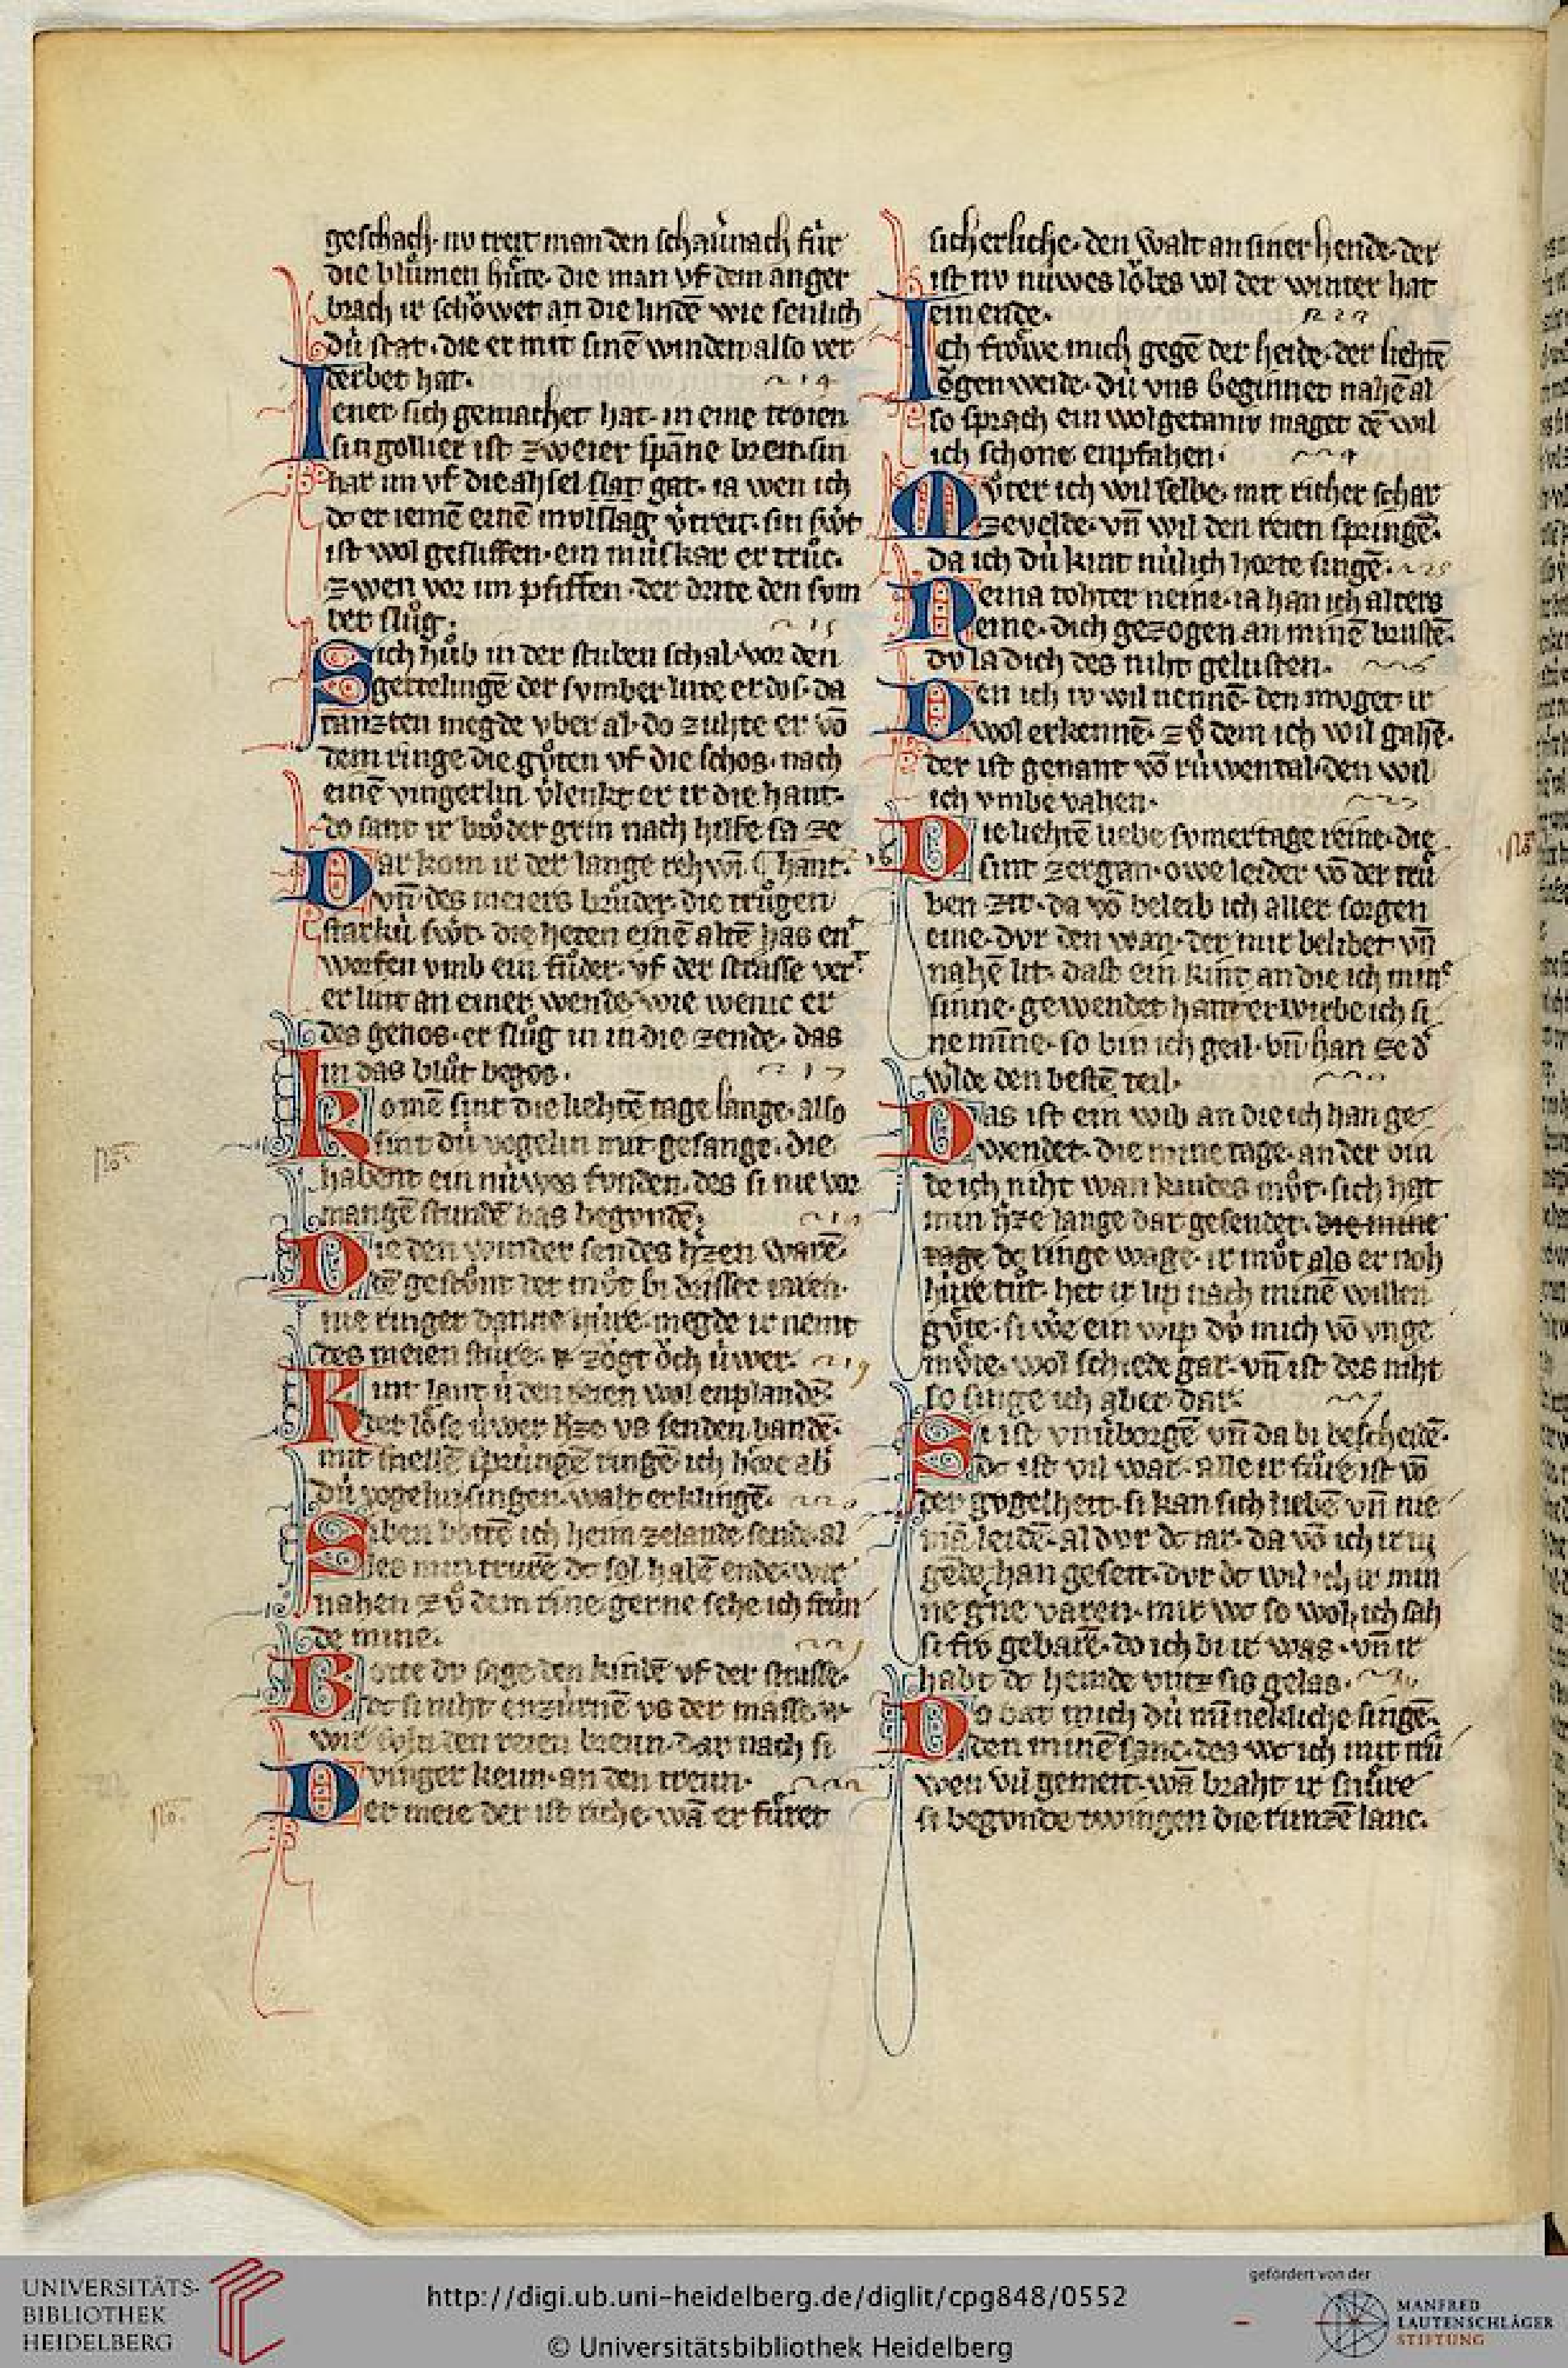 geschach· nv treit man den schavnach fúr
die blůmen hůte· die man vf dem anger
brach ir schǒwet an die lindē wie senlich
dú stat· die er mit sinē winden also ver
derbet hat·
Iener sich gemachet hat· in eine troien
sin gollier ist zweier spāne breit· sin
hat im vf die ahsel slat gat· ia wen ich
ist wol gesliffen· ein múskar er trůc·
zwen vor im pfiffen· der drite den svm
ber slůg·
Sich hůb in der stuben schal· vor den
getelingē der svmber lute er dos· da
tanzten megde vber al· do zuhte er vō
dem ringe die gůten vf die schos· nach
einē vingerlin v̉lenkt er ir die hant·
do sant ir brůder grin nach hilfe sa ze
Dar kom ir der lange reh vn̄ hant·
vn̄ des meiers brůder· die trůgen
starkú swt· die heten einē altē has en
worfen vmb ein fůder· vf der strasse ver
er lint an einer wende· wie wenic er
des genos· er slůg in in die zende· das
in das blůt begos·
Komē sint die liehtē tage lange· also
sint dú vogelin mit gesange· die
habent ein núwes fvnden· des si nie vor
mangē stundē bas begvndē·
Die den winder sendes hzen warē·
dē gestůnt der můt bi drissec iaren·
nie ringer danne húre· megde ir nemt
des meien stúre· zǒgt ǒch úwer·
Kint lant ú den reien wol enplandē·
der lǒse úwer hze vs senden bandē·
mit snellē sprúngē ringē· ich hǒre ab
dú vogelin singen· walt erklingē·
Lieben bottē ich heim zelande sende· al
les min trurē dc sol habē ende· wir
nahen zů dem rine· gerne sehe ich frún
de mine·
Botte dv sage den kindē vf der strasse·
dc si niht enzúrnē vs der masse·
wir suln den reien breun· dar nach si
vinger keun· an den treun·
Der meie der ist riche· wā er fůret
sicherliche· den walt an siner hende· der
ist nv núwes lǒbes vol der winter hat
ein ende·
Ich frǒwe mich gegē der heide· der liehtē
ǒgen weide· dú vns beginnet nahē al
so sprach ein wolgetaniv maget dē wil
ich schone enpfahen·
Můter ich wil selbe· mit richer schar
ze velde· vn̄ wil den reien springē·
da ich dú kint núlich horte singē·
Neina tohter neine· ia han ich alters
eine· dich gezogen an minē brustē·
dv la dich des niht gelusten·
Den ich iv wil nennē· den mvget ir
wol erkennē· zů dem ich wil gahē·
der ist genant vō rúwental· den wil
ich vmbe vahen·
Die liehtē liebe svmertage reine· die
sint zergan· owe leider vō der trů
ben zit· da vō beleib ich aller sorgen
eine· dvr den wan· der mir belibet vn̄
nahē lit· dast ein kint an die ich min
sinne· gewendet han· erwirbe ich si
ne mīne· so bin ich geil· vn̄ han ze d
wlde den bestē teil·
Das ist ein wib an die ich han ge
wendet· die mine tage· an der vin
de ich niht wan kindes můt· sich hat
min hze lange dar gesendet· die mine
tage dc ringe wage· ir můt als er noh
húre tůt· het ir lip nach minē willen
gůte· si w̉e ein wip dú mich vō vnge
můte· wol schiede gar· vn̄ ist des niht
so singe ich aber dar·
Si ist vnv̉borgē vn̄ da bi bescheidē·
dc ist vil war· alle ir fůre ist vō
der gogelheit· si kan sich liebē vn̄ nie
mā leidē· al dvr dc iar· da vō ich ir iu
gēde han geseit· dvr dc wil ich ir min
ne g̉ne varen· mir wc so wol· ich sah
si fro gebarē· do ich bi ir was· vn̄ ir
habt dc hemde vntz sis gelas·
Do bat mich dú mīnekliche singē·
den minē sanc· des wc ich mit trú
wen vil gemeit· wā braht ir snůre
si begvnde twingen die runzē lanc·
UNIVERSITÄTS-
BIBLIOTHEK
HEIDELBERG
http://digi.ub.uni-heidelberg.de/diglit/cpg848/0552
© Universitätsbibliothek Heidelberg
gefördert von der
MANFRED
LAUTENSCHLÄGER
STIFTUNG